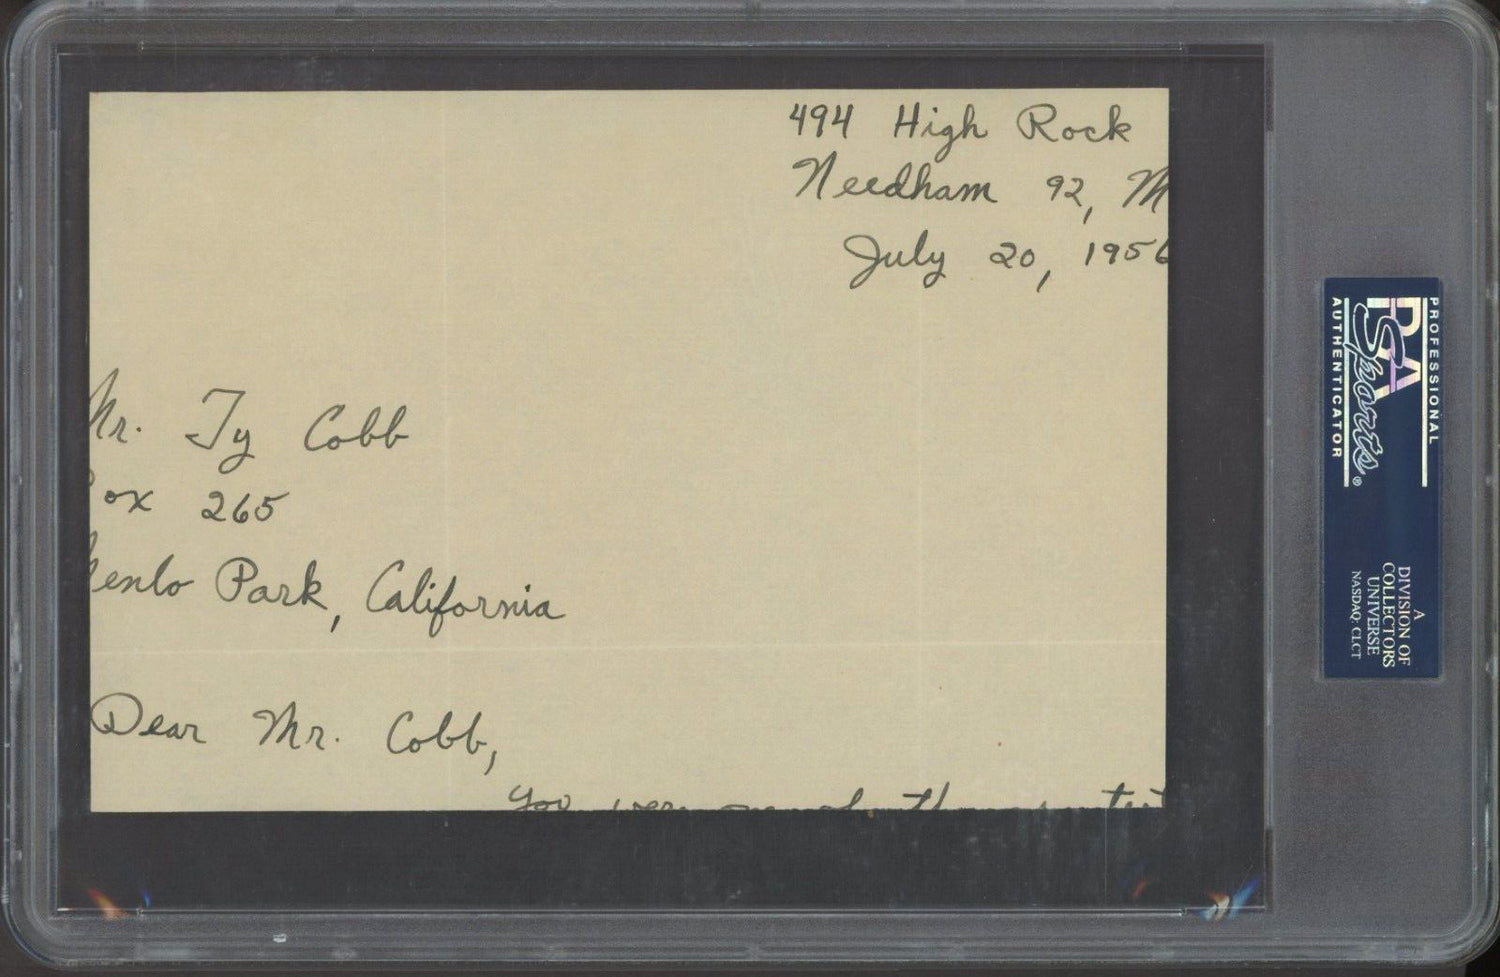 494 High Rock
Needham 92, M
July 20, 1956
Mr. Ty Cobb
ox 265
Menlo Park, California
Dear Mr. Cobb,
You were one of the
PSA
Sports®
PROFESSIONAL
AUTHENTICATOR
A
DIVISION OF
COLLECTORS
UNIVERSE
NASDAQ: CLCT